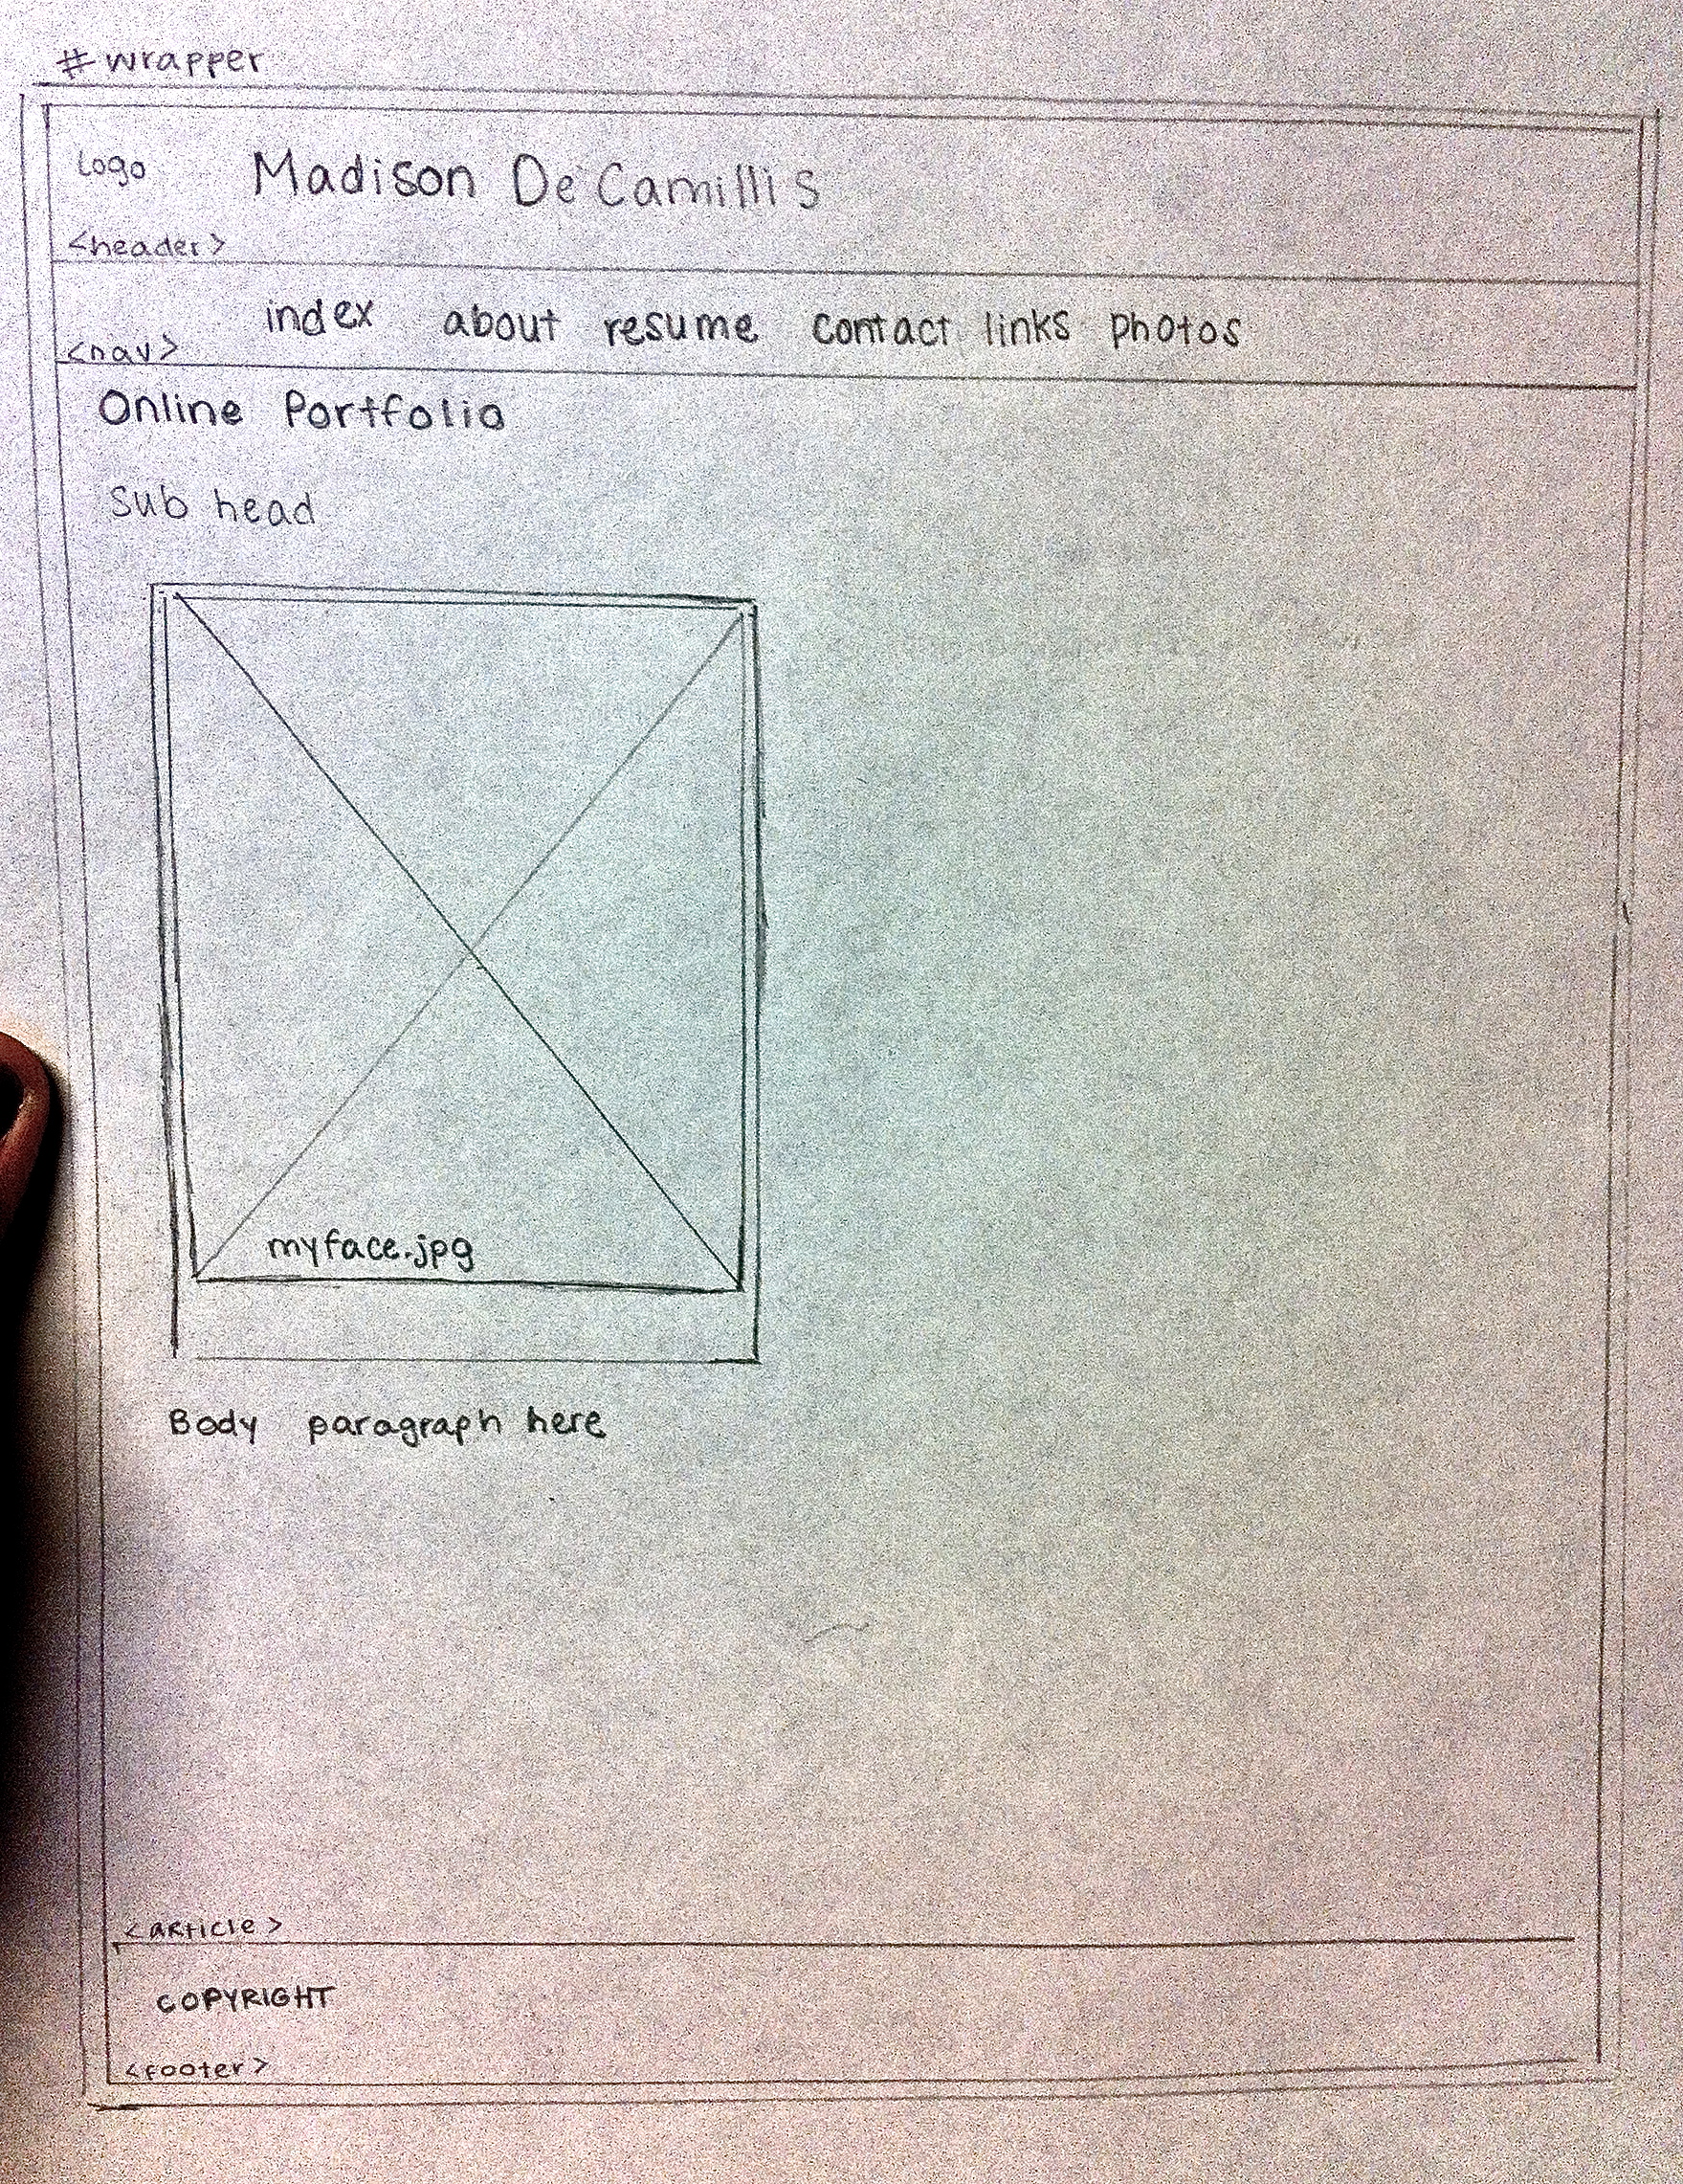 #wrapper
Logo Madison DeCamillis
<header>
index about resume contact links photos
<nav>
Online Portfolio
Sub head
myface.jpg
Body paragraph here
<article>
COPYRIGHT
<footer>